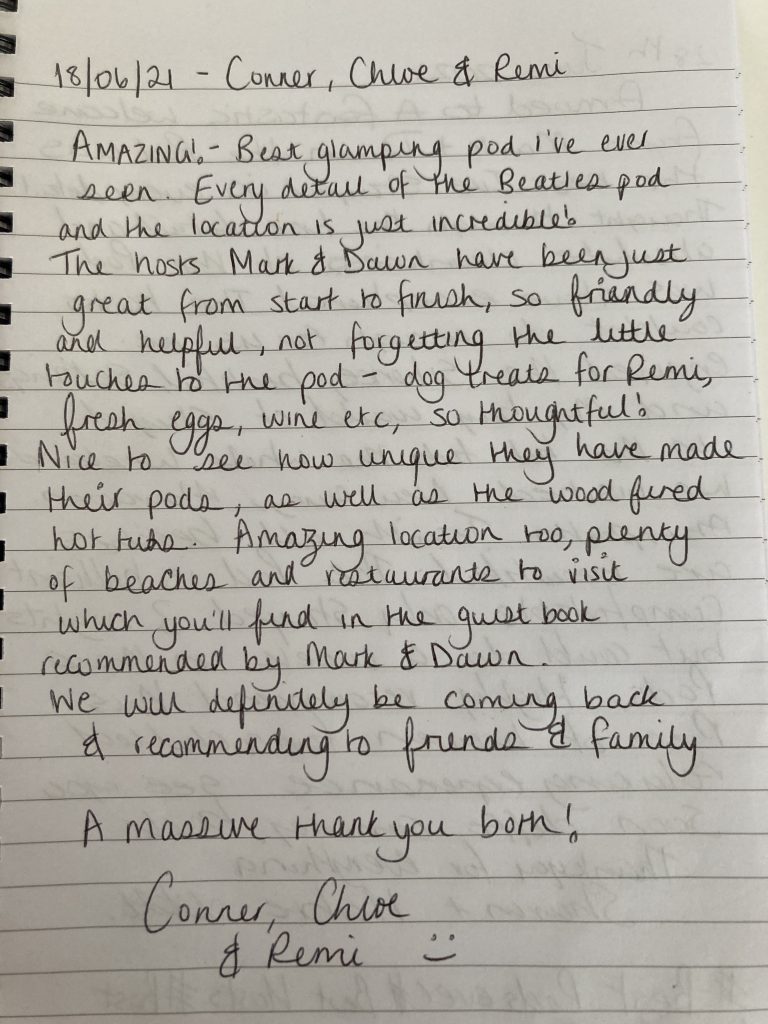 18/06/21 - Conner, Chloe & Remi
AMAZING! - Best glamping pod I've ever
seen. Every detail of the Beatles pod
and the location is just incredible!
The hosts Mark & Dawn have been just
great from start to finish, so friendly
and helpful, not forgetting the little
touches to the pod - dog treats for Remi,
fresh eggs, wine etc, so thoughtful!
Nice to see how unique they have made
their pods, as well as the wood fired
hot tubs. Amazing location too, plenty
of beaches and restaurants to visit
which you'll find in the guest book
recommended by Mark & Dawn.
We will definitely be coming back
& recommending to friends & family
A massive thank you both!
Conner, Chloe
& Remi :)